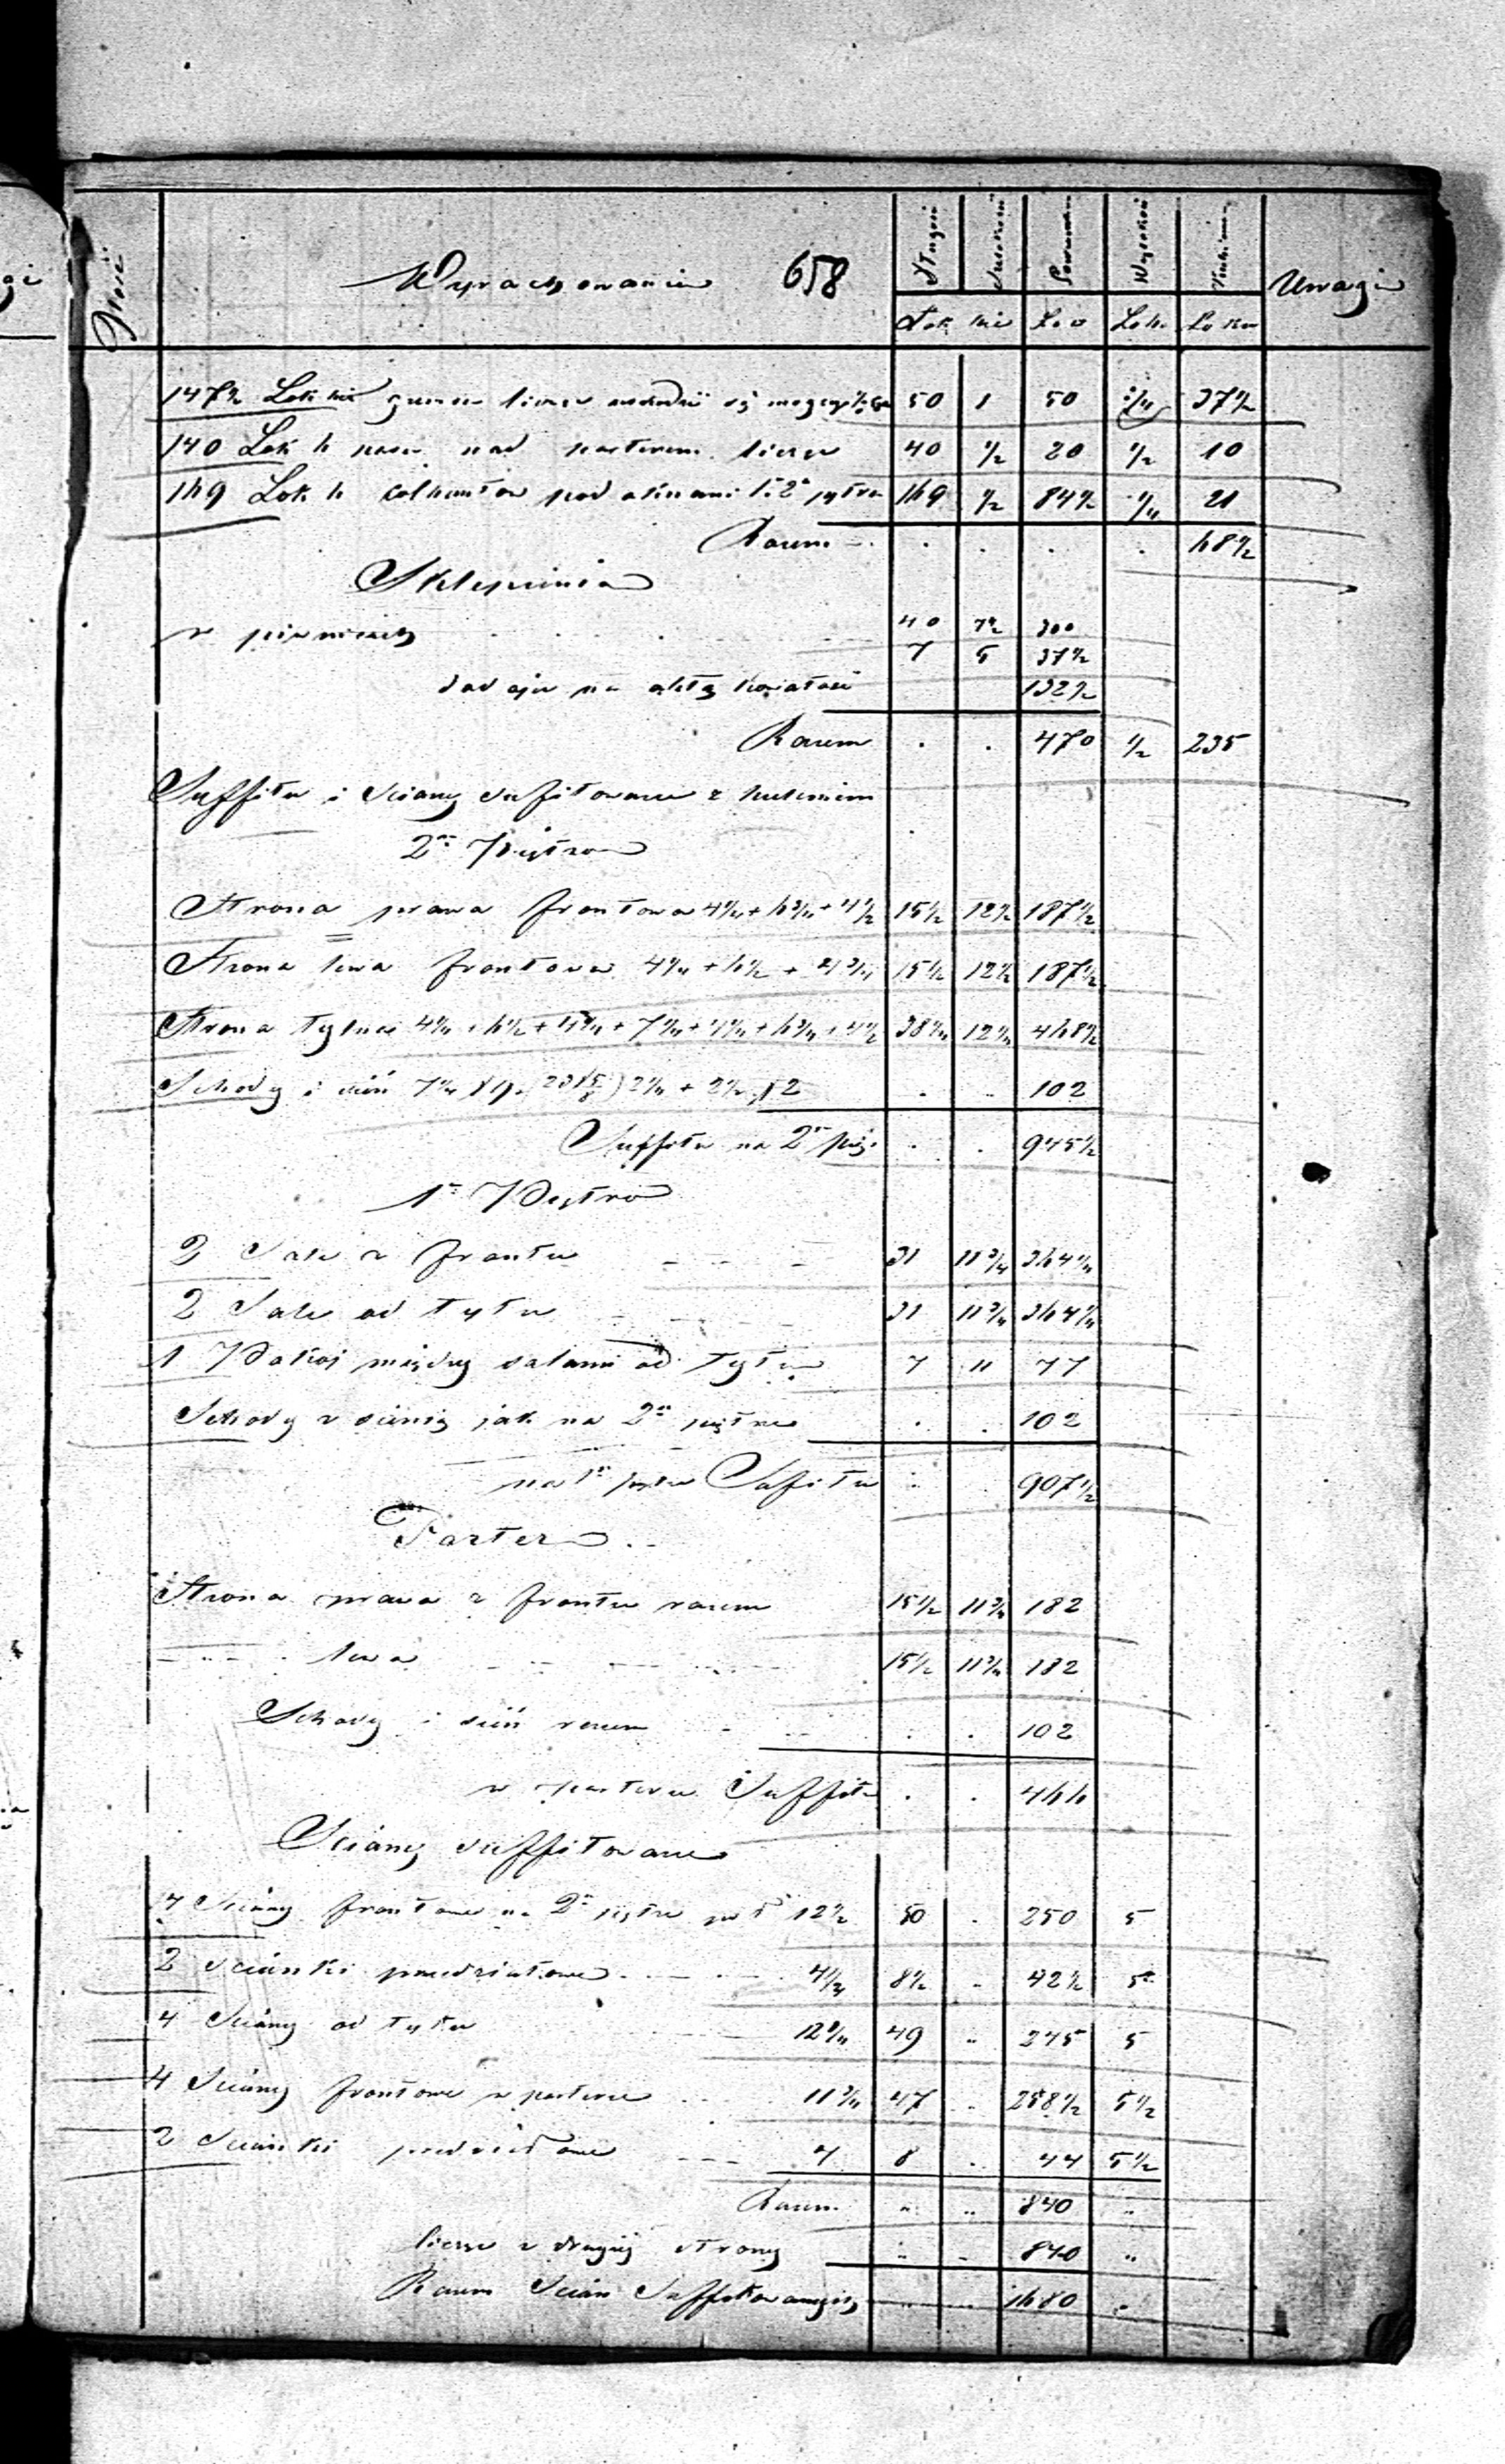 Ilość
Wyrachowanie 658
Długość Szerokość Powierzchnia Wysokość Kubiczna Uwagi
Łok kcie Łok Łok Łokcie
147½ Łokkci gzymsu licząc 50 1 50 3/4 37½
140 Łok k nad parterem licząc 40 ½ 20 ½ 10
169 Łok k pod oknami 1 i 2o piętra 169 ½ 84½ ¼ 21
Razem . . . . 68½
Sklepienia
w piwnicach 40 7½ 300
7 5 37½
dodaje na 132½
Razem . . 470 ½ 235
Suffitu i Sciany sufitowane z
2re Piętro
Strona prawa frontowa 4¼ + 6¾ + 4½ 15½ 12½ 187½
Strona lewa frontowa 4¼ + 6½ + 4¾ 15½ 12½ 187½
Strona tylnia 4¼ + 6½ + 4¾ + 7¼ + 4¼ + 6¾ + 4½ 38¼ 12¼ 468½
Schody i sień . .. 102
Suffitu na 2m pię. .. . 945½
1e Piętro
2 Sale z frontu 31 11¾ 364¼
2 Sale od tyłu 31 11¾ 364¼
1 Pokoj między salami od tyłu 7 11 77
Schody z sienią jak na 2m piętrze . . 102
na 1m piętrze Sufitu 907½
Parter
Strona prawa z frontu razem 15½ 11¾ 182
lewa 15½ 11¾ 182
Schody i sień razem . . 102
w parterze Suffitu . . 466
Sciany suffitowane
4 Sciany frontowe na 2m piętrze po 12½ 50 . 250 5
2 Scianki przedziałowe 4¼ 8½ .. 42½ 5
4 Sciany od tyłu 12¼ 49 .. 245 5
4 Sciany frontowe w parterze 11¾ 47 .. 258½ 5½
2 Scianki 4 8 .. 44 5½
Razem .. .. 840 ..
licząc z drugiej strony .. .. 840 ..
Razem Scian Suffitowanych .. .. 1680 ..